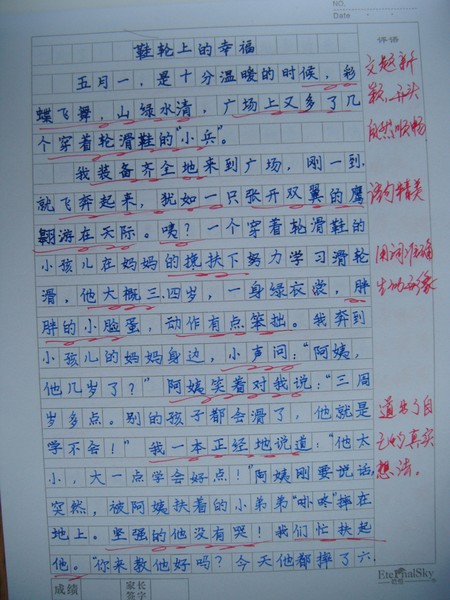 NO.
Date
评语
鞋轮上的幸福
五月一，是十分温暖的时候，彩
蝶飞舞，山绿水清，广场上又多了几
个穿着轮滑鞋的“小兵”。
我装备齐全地来到广场，刚一到，
就飞奔起来，犹如一只张开双翼的鹰
翱游在天际。咦？一个穿着轮滑鞋的
小孩儿在妈妈的搀扶下努力学习滑轮
滑，他大概三、四岁，一身绿衣裳，胖
胖的小脸蛋，动作有点笨拙。我奔到
小孩儿的妈妈身边，小声问：“阿姨，
他几岁了？”阿姨笑着对我说：“三周
岁多点。别的孩子都会滑了，他就是
学不会！”我一本正经地说道：“他太
小，大一点学会好点！”阿姨刚要说话，
突然，被阿姨扶着的小弟弟“咔咚”摔在
地上。坚强的他没有哭！我们忙扶起
他。“你来教他好吗？今天他都摔了六
文题新
颖，开头
自然顺畅
语句精美
用词准确
生动形象
道出了自
己的真实
想法。
成绩
家长
签字
EternalSky